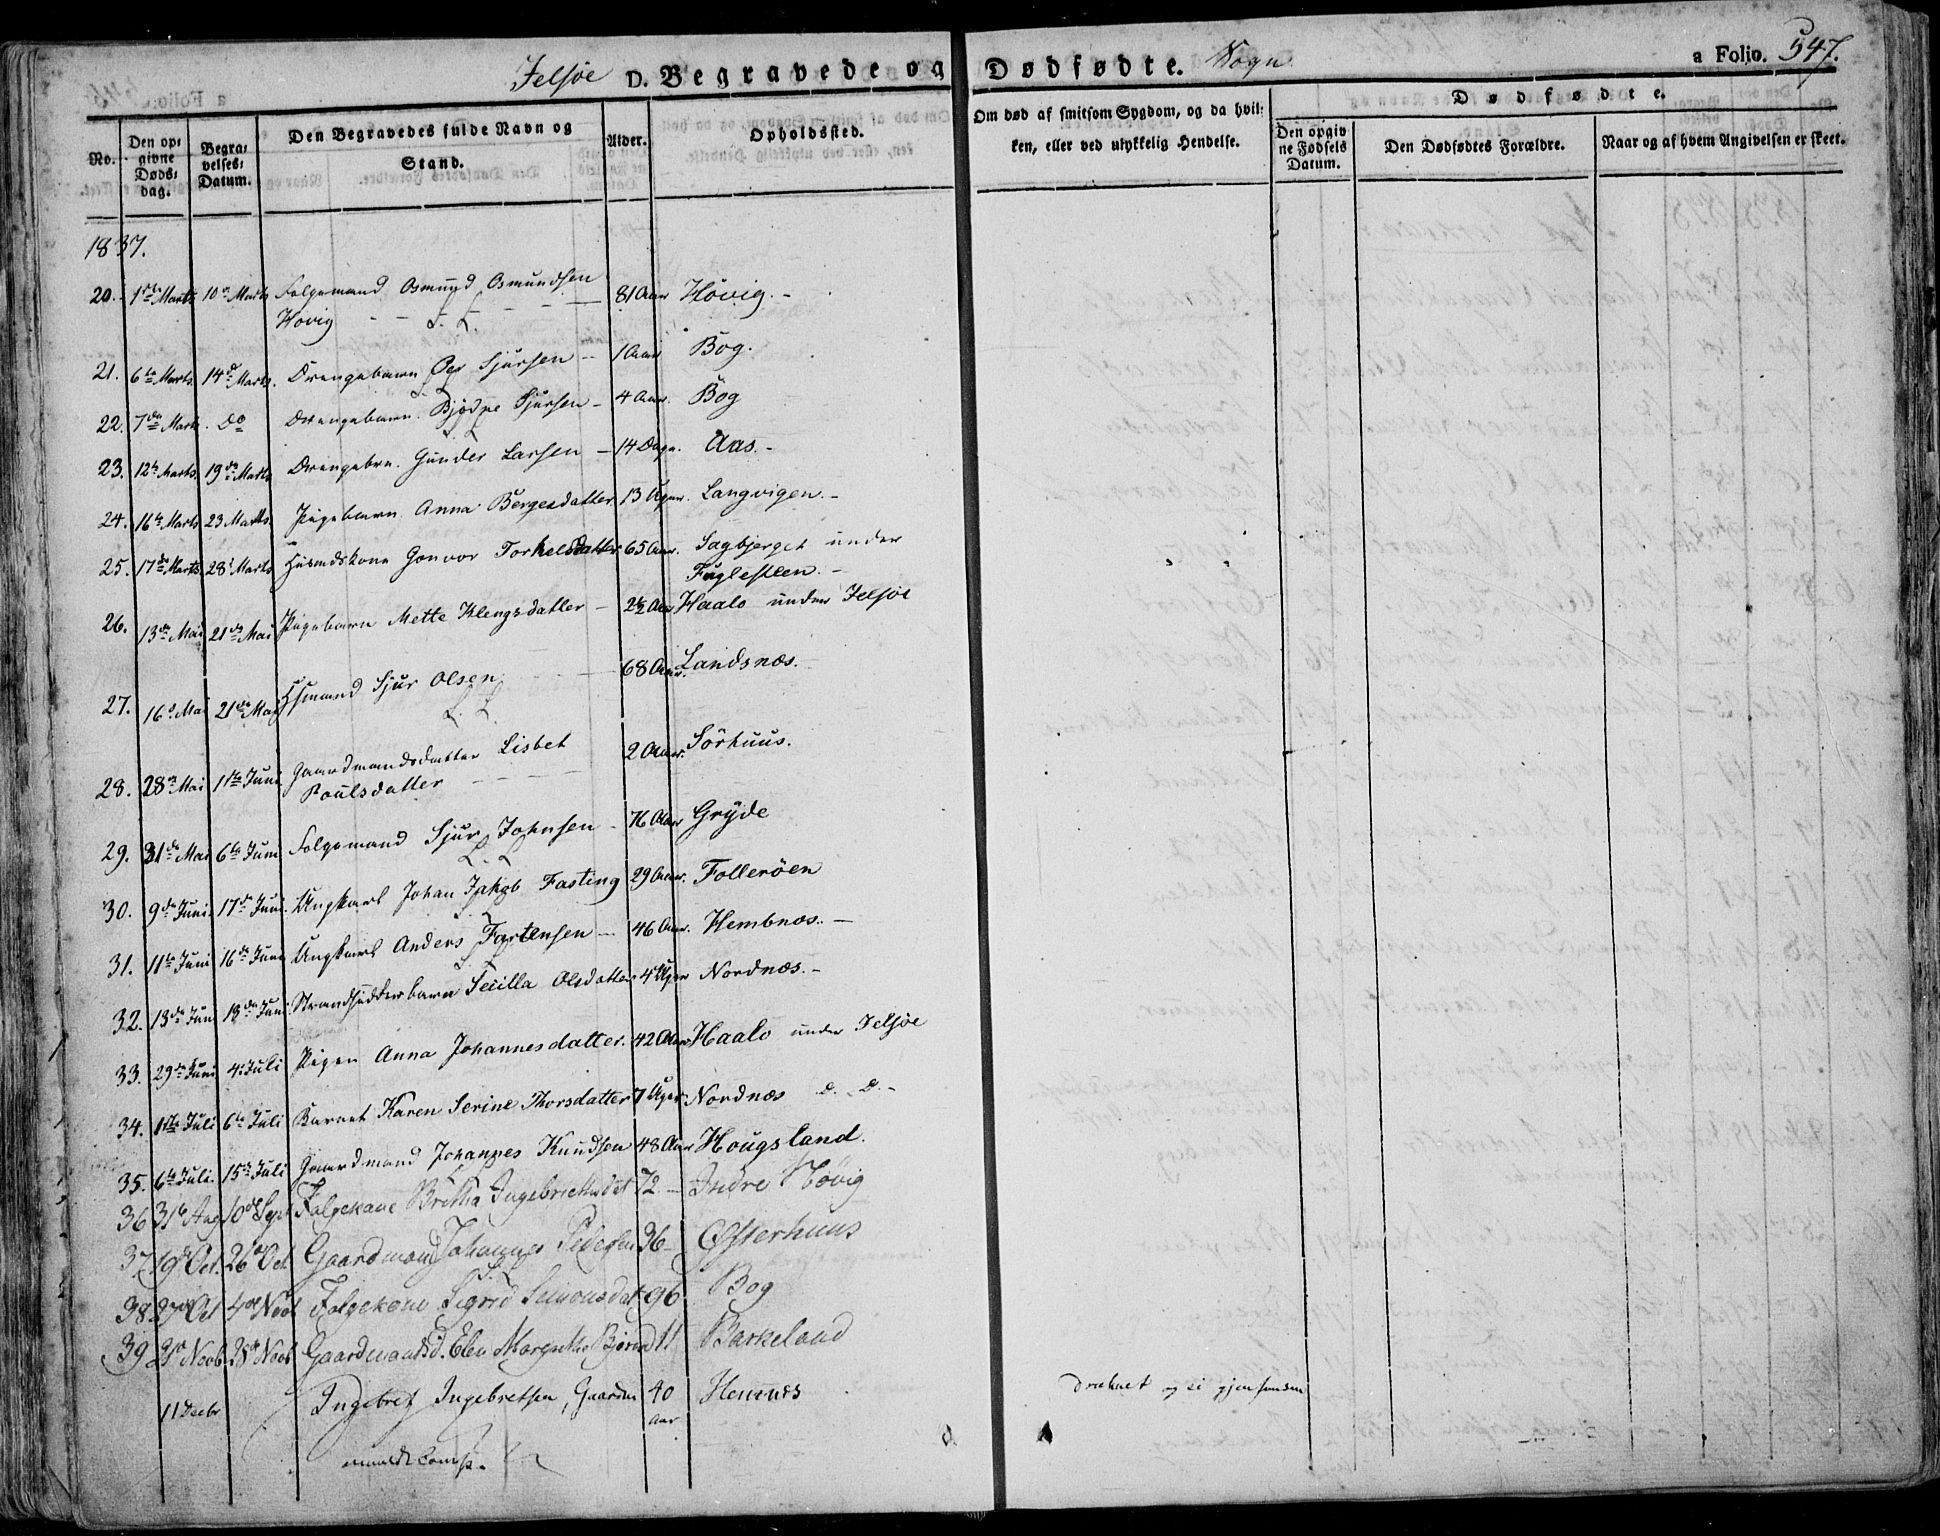 Jelsøe D. Begravede og Dødfødte. Sogn a Folio. 547.
No.
Den opgivne Dødsdag.
Begravelses Datum.
Den Begravedes fulde Navn og Stand.
Alder.
Opholdssted.
Om død af smitsom Sygdom, og da hvilken, eller ved ulykkelig Hendelse.
Dødfødte.
Den opgivne Fødsels Datum.
Den Dødfødtes Forældre.
Naar og af hvem Angivelsen er skeet.
1837.
20. 1ste Marts 10de Marts Folgemand Osmund Osmundsen 81 Aar Høvig. -
Hovig
21. 6te Marts 14de Marts. Drengebarn Per Sjursen - 1 Aar Bog.
22. 7de Marts Do Drengebarn Sjursen - 4 Aar. Bog
23. 12te Marts 19de Marts Drengebrn. Gunder Larsen - 14 Dage. Aas. -
24. 16te Marts 23 Marts. Pigebarn Anna Bergesdatter 13 Uger. Langvigen. -
25. 17de Marts 28 Marts Husmdskone Gonvor Torkelsdatter 65 Aar. Sagbjerget under
Fuglesteen. -
26. 13de Mai 21de Mai Pigebarn Mette Klengsdatter - 2½ Aar Haalo under Jelsøe
27. 16 Mai 21de Mai Hsmand Sjur Olsen 68 Aar. Landsnæs.
28. 28de Mai 11te Juni Gaardmandsdatter Lisbet 2 Aar. Sørhuus.
Poulsdatter
29. 31de Mai 6te Juni Folgemand Sjur Johnsen - 76 Aar Gryde
30. 9de Juni. 17de Juni. Ungkarl Johan Jakob Fasting 29 Aar. Follerøen
31. 11te Juni 16de Juni Ungkarl Anders - 46 Aar. Hembnæs. -
32. 13de Juni 18de Juni Strandsidderbarn Olsdatter 4 Uger Nordnæs. -
33. 29de Juni 4. Juli Pigen Anna Johannesdatter. 42 Aar Haalo under Jelsøe
34. 1ste Juli 6te Juli Barnet Karen Serine Thorsdatter 7 Uger Nordnæs
35. 6te Juli. 15de Juli Gaardmand Johannes Knudsen 48 Aar Hougsland.
36 31te Aug 10de Sept Folgekone Britha 72 - Indre Høvig
37 19de Oct. 26de Oct. Gaardmand Johannes Pedersen 36 - Østerhuus
38 27de Oct 4de Novb Folgekone Sigrid Simonsdat 96 Bog
39 21de Novb 28de Novb Gaardmandsd. Elen Margrethe 11 Barkeland
11 Decbr Ingebret Ingebretsen, 40 Hemnæs druknet og ei gjenfunden
Aar